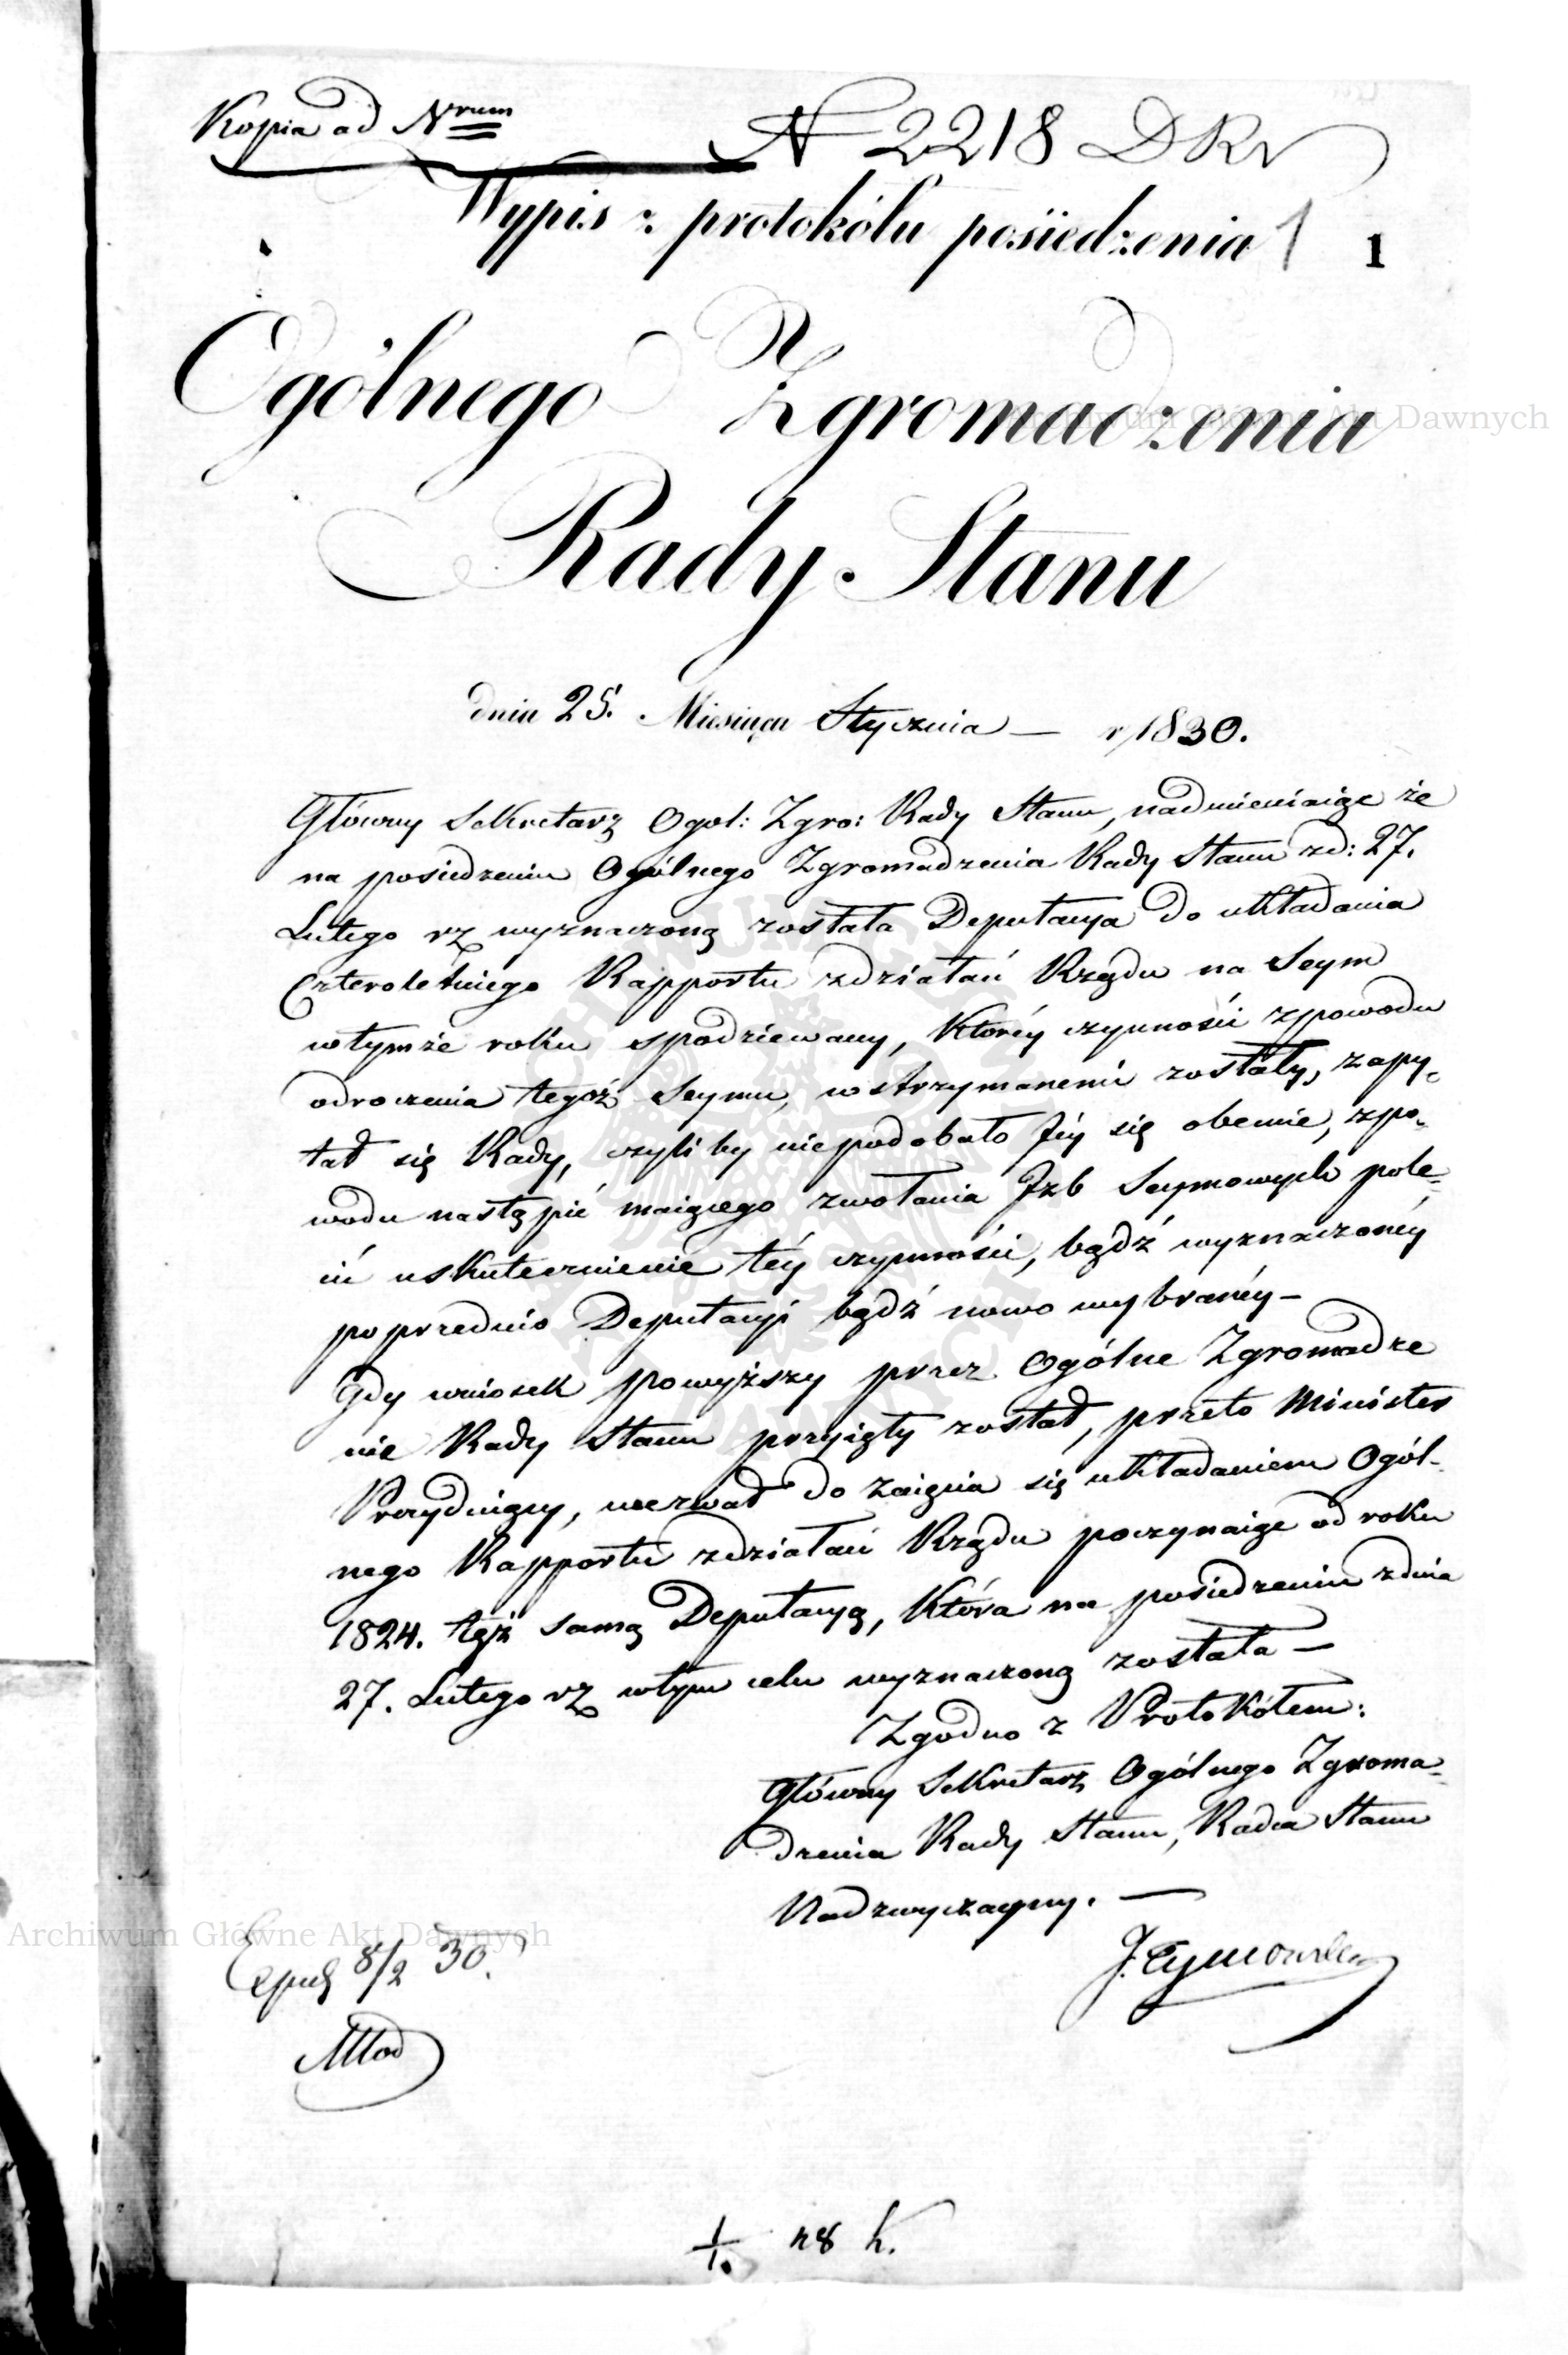 Kopia ad Nrum
N 2218 DRS
Wypis z protokółu posiedzenia 1 1
Ogólnego Zgromadzenia
Rady Stanu
dnia 25. Miesiąca Stycznia — r. 1830.
Główny Sekretarz Ogol: Zgro: Rady Stanu, nadmieniaiąc że
na posiedzeniu Ogólnego Zgromadzenia Rady Stanu zd: 27.
Lutego rz wyznaczoną została Deputacya do układania
Czteroletniego Rapportu zdziałań Rządu na Seym
wtymże roku spodziewany, któréy czynności zpowodu
odroczenia tegoż Seymu, wstrzymanemi zostały, zapy-
tał się Rady, czyliby niepodobało Jéy się obecnie, zpo-
wodu nastąpić maiącego zwołania Jzb Seymowych pole-
cić uskutecznienie téy czynności, bądź wyznaczonéy
poprzednio Deputacyi bądź nowo wybranéy —
Gdy wniosek powyższy przez Ogólne Zgromadze
nie Rady Stanu przyięty został, przeto Minister
Prezyduiący, wezwał do zaięcia się układaniem Ogól-
nego Rapportu zdziałań Rządu poczynaiąc od roku
1824. tęż samą Deputacyą, która na posiedzeniu zdnia
27. Lutego rz wtym celu wyznaczoną została —
Zgodno z Protokółem:
Główny Sekretarz Ogólnego Zgroma-
dzenia Rady Stanu, Radca Stanu
Nadzwyczayny. —
J. Tymowski
8/2 30.
28 k.
Archiwum Główne Akt Dawnych
Archiwum Główne Akt Dawnych